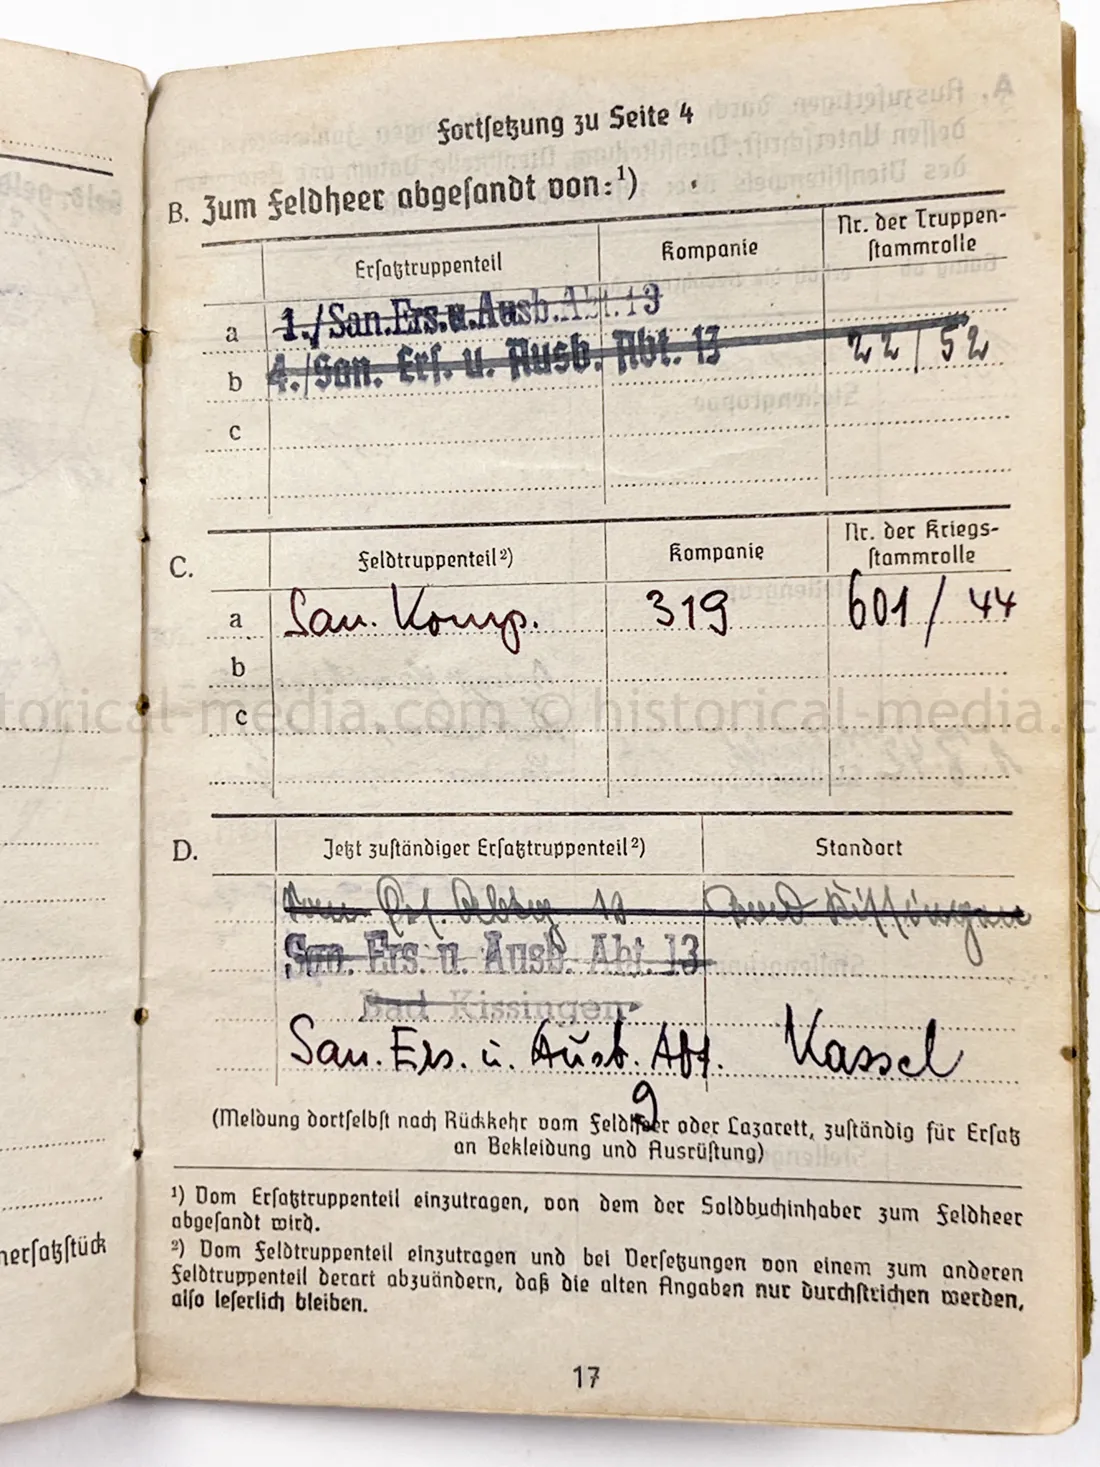 Fortsetzung zu Seite 4
B. Zum Feldheer abgesandt von:¹)
Ersatztruppenteil Kompanie Nr. der Truppen-
stammrolle
a 1./San.Ers.u.Ausb.Abt.13
b 4./San. Ers. u. Ausb. Abt. 13 22/52
c
C. Feldtruppenteil²) Kompanie Nr. der Kriegs-
stammrolle
a San. Komp. 319 601/44
b
c
historical-media.com © historical-media.c
D. Jetzt zuständiger Ersatztruppenteil²) Standort
Ers. Abtlg 13 Bad Kissingen
San. Ers. u. Ausb. Abt. 13
Bad Kissingen
San. Ers. u. Ausb. Abt. Kassel
9
(Meldung dortselbst nach Rückkehr vom Feldheer oder Lazarett, zuständig für Ersatz
an Bekleidung und Ausrüstung)
¹) Vom Ersatztruppenteil einzutragen, von dem der Soldbuchinhaber zum Feldheer
abgesandt wird.
²) Vom Feldtruppenteil einzutragen und bei Versetzungen von einem zum anderen
Feldtruppenteil derart abzuändern, daß die alten Angaben nur durchstrichen werden,
also leserlich bleiben.
17
nersatzstück